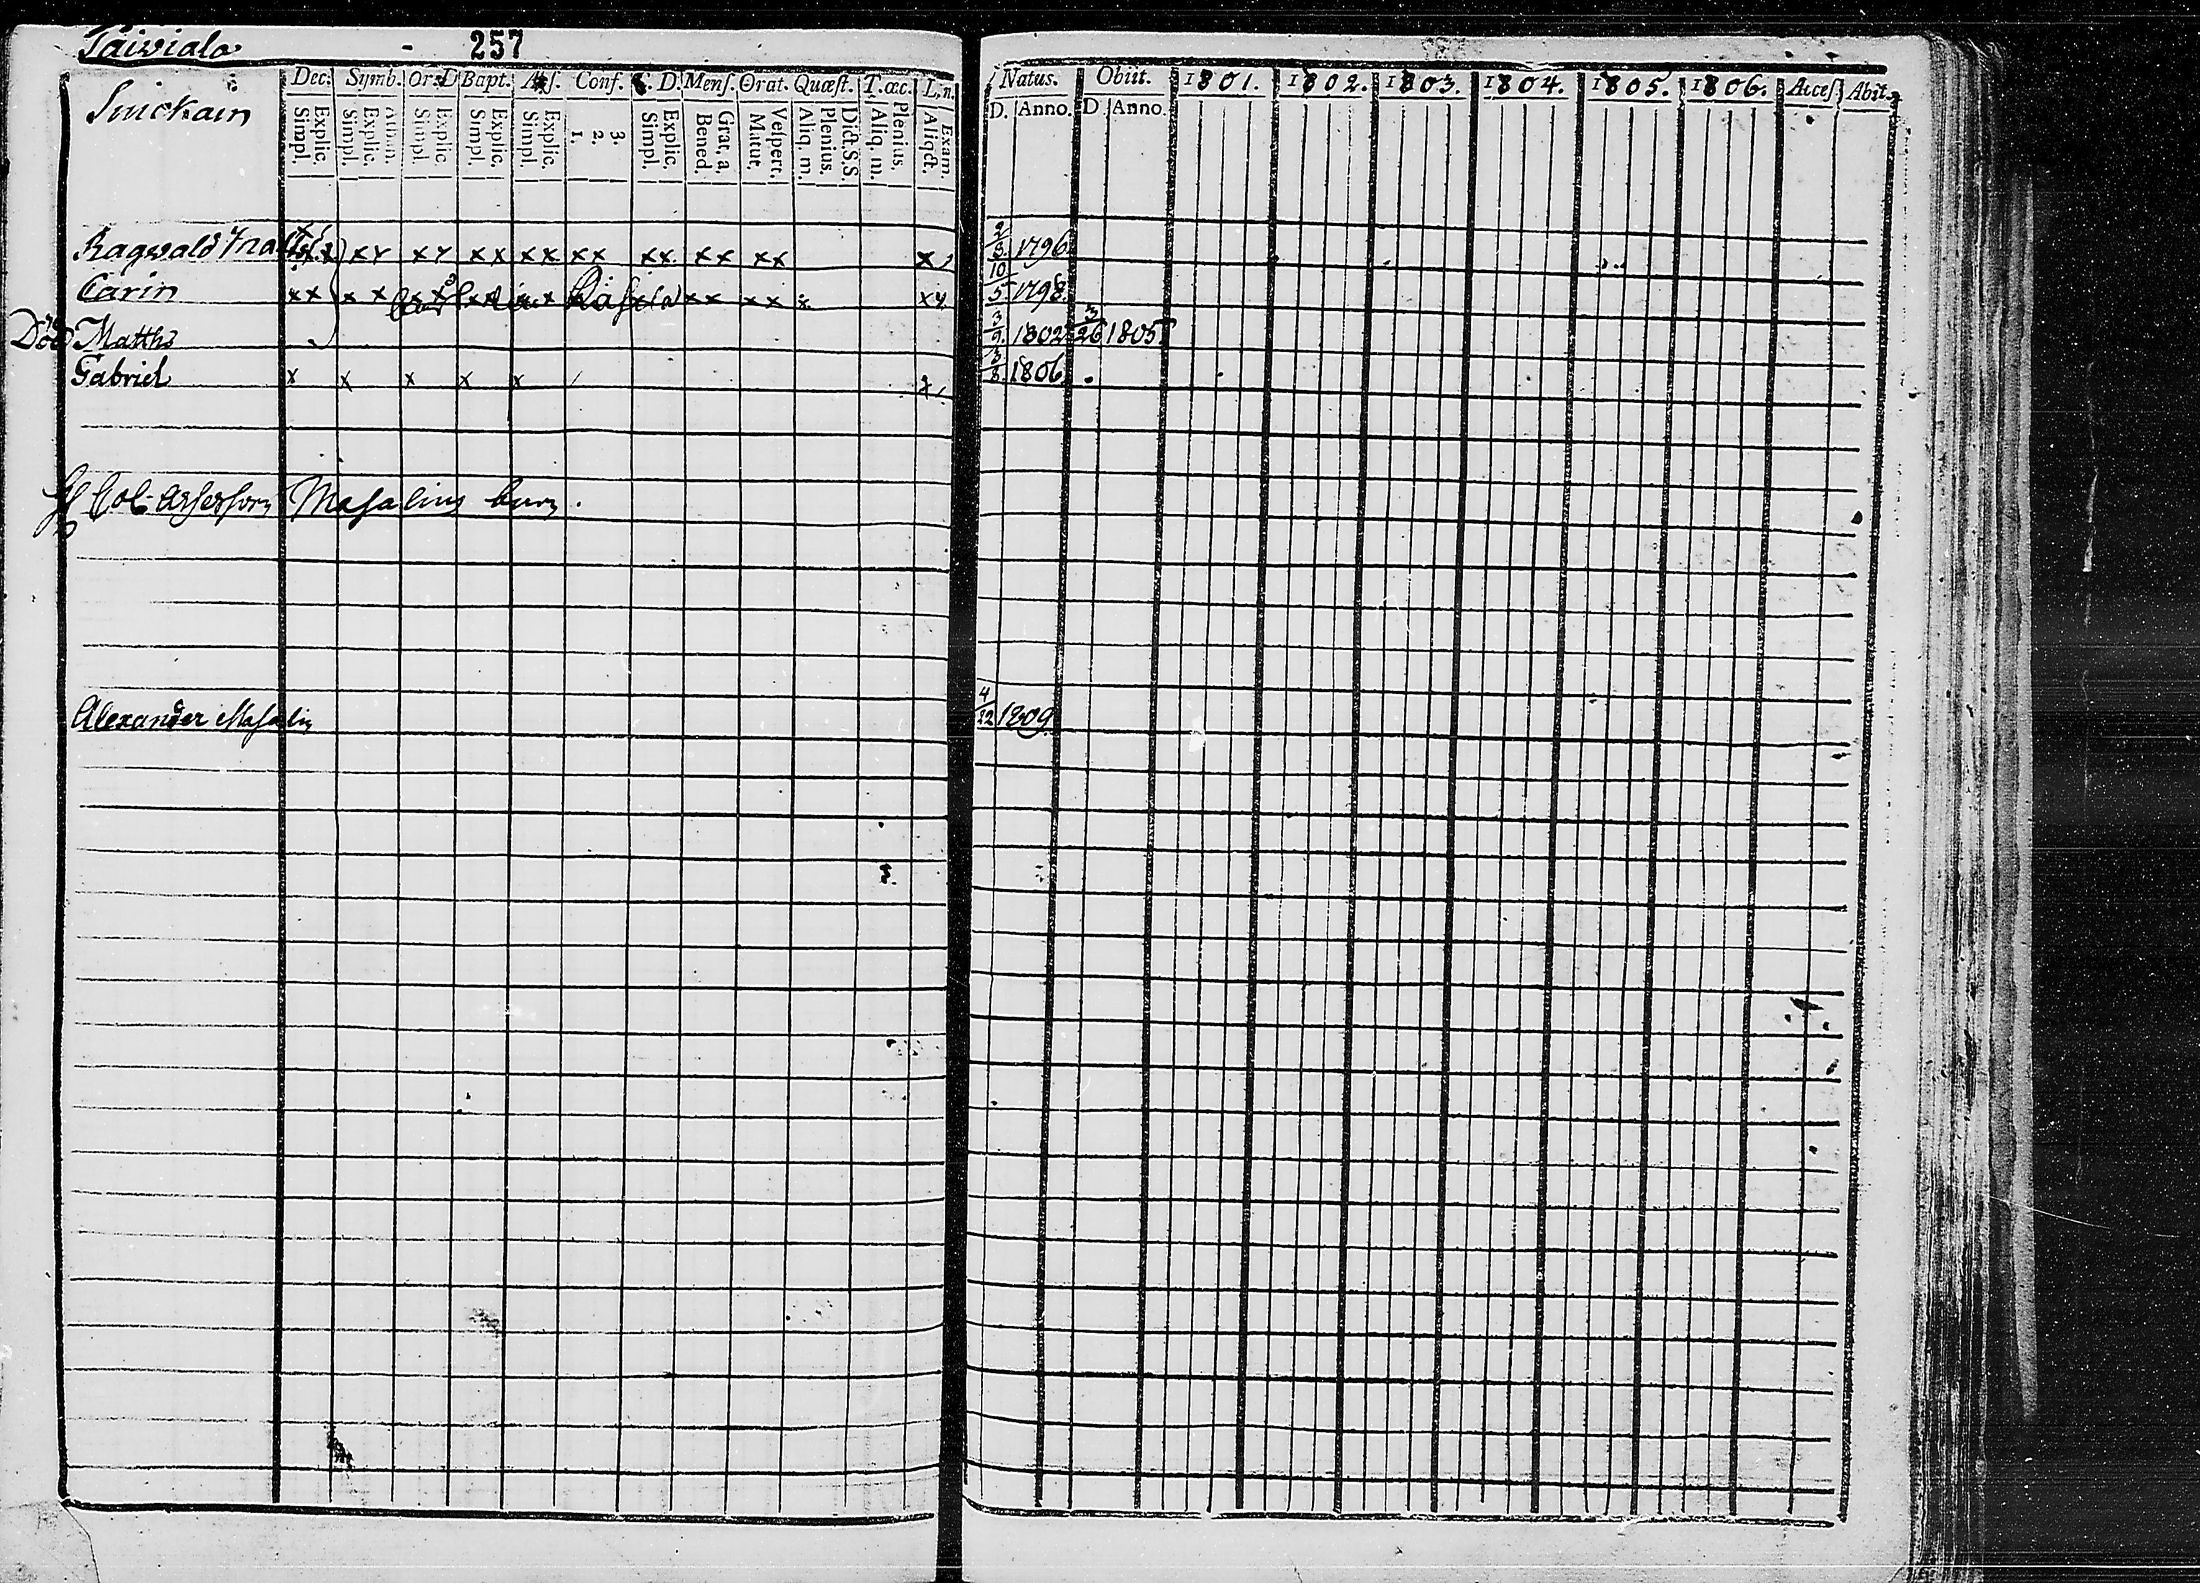 Taiviala - 257
Dec. Symb. Or. D Bapt. Abſ. Conf. C. D. Menſ. Orat. Quæſt. T. œc. L. n.
Explic. Simpl.
Athan. Explic. Simpl.
Explic Simpl.
Explic. Simpl.
Explic. Simpl.
3. 2. 1.
Explic. Simpl.
Grat, a, Bened.
Veſpert. Matut.
Dict.S.S. Plenius. Aliq. m.
Plenius. Aliq. m.
Exam. Aliqdt.
Natus. Obiit. 1801. 1802. 1803. 1804. 1805. 1806. Acceſ. Abit.
D. Anno. D Anno.
Ragwald x x x x x x x x x x x x x x x x x x 2/8 1796
Carin x x x x x x x x x x x x x 10/5 1798
Död Matths 3/9 1802 3/26 1805
Gabriel x x x x x 3/8 1806
Col. Assessorn Masalins barn.
Alexander Masalin 4/22 1809